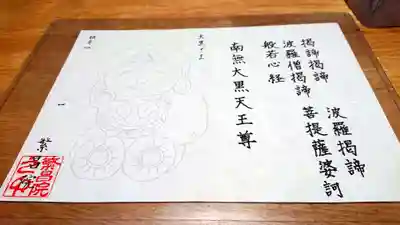 揭諦揭諦
波羅揭諦
波羅僧揭諦
菩提薩婆訶
般若心経
南無大黒天王尊
大黒さま
繁昌院